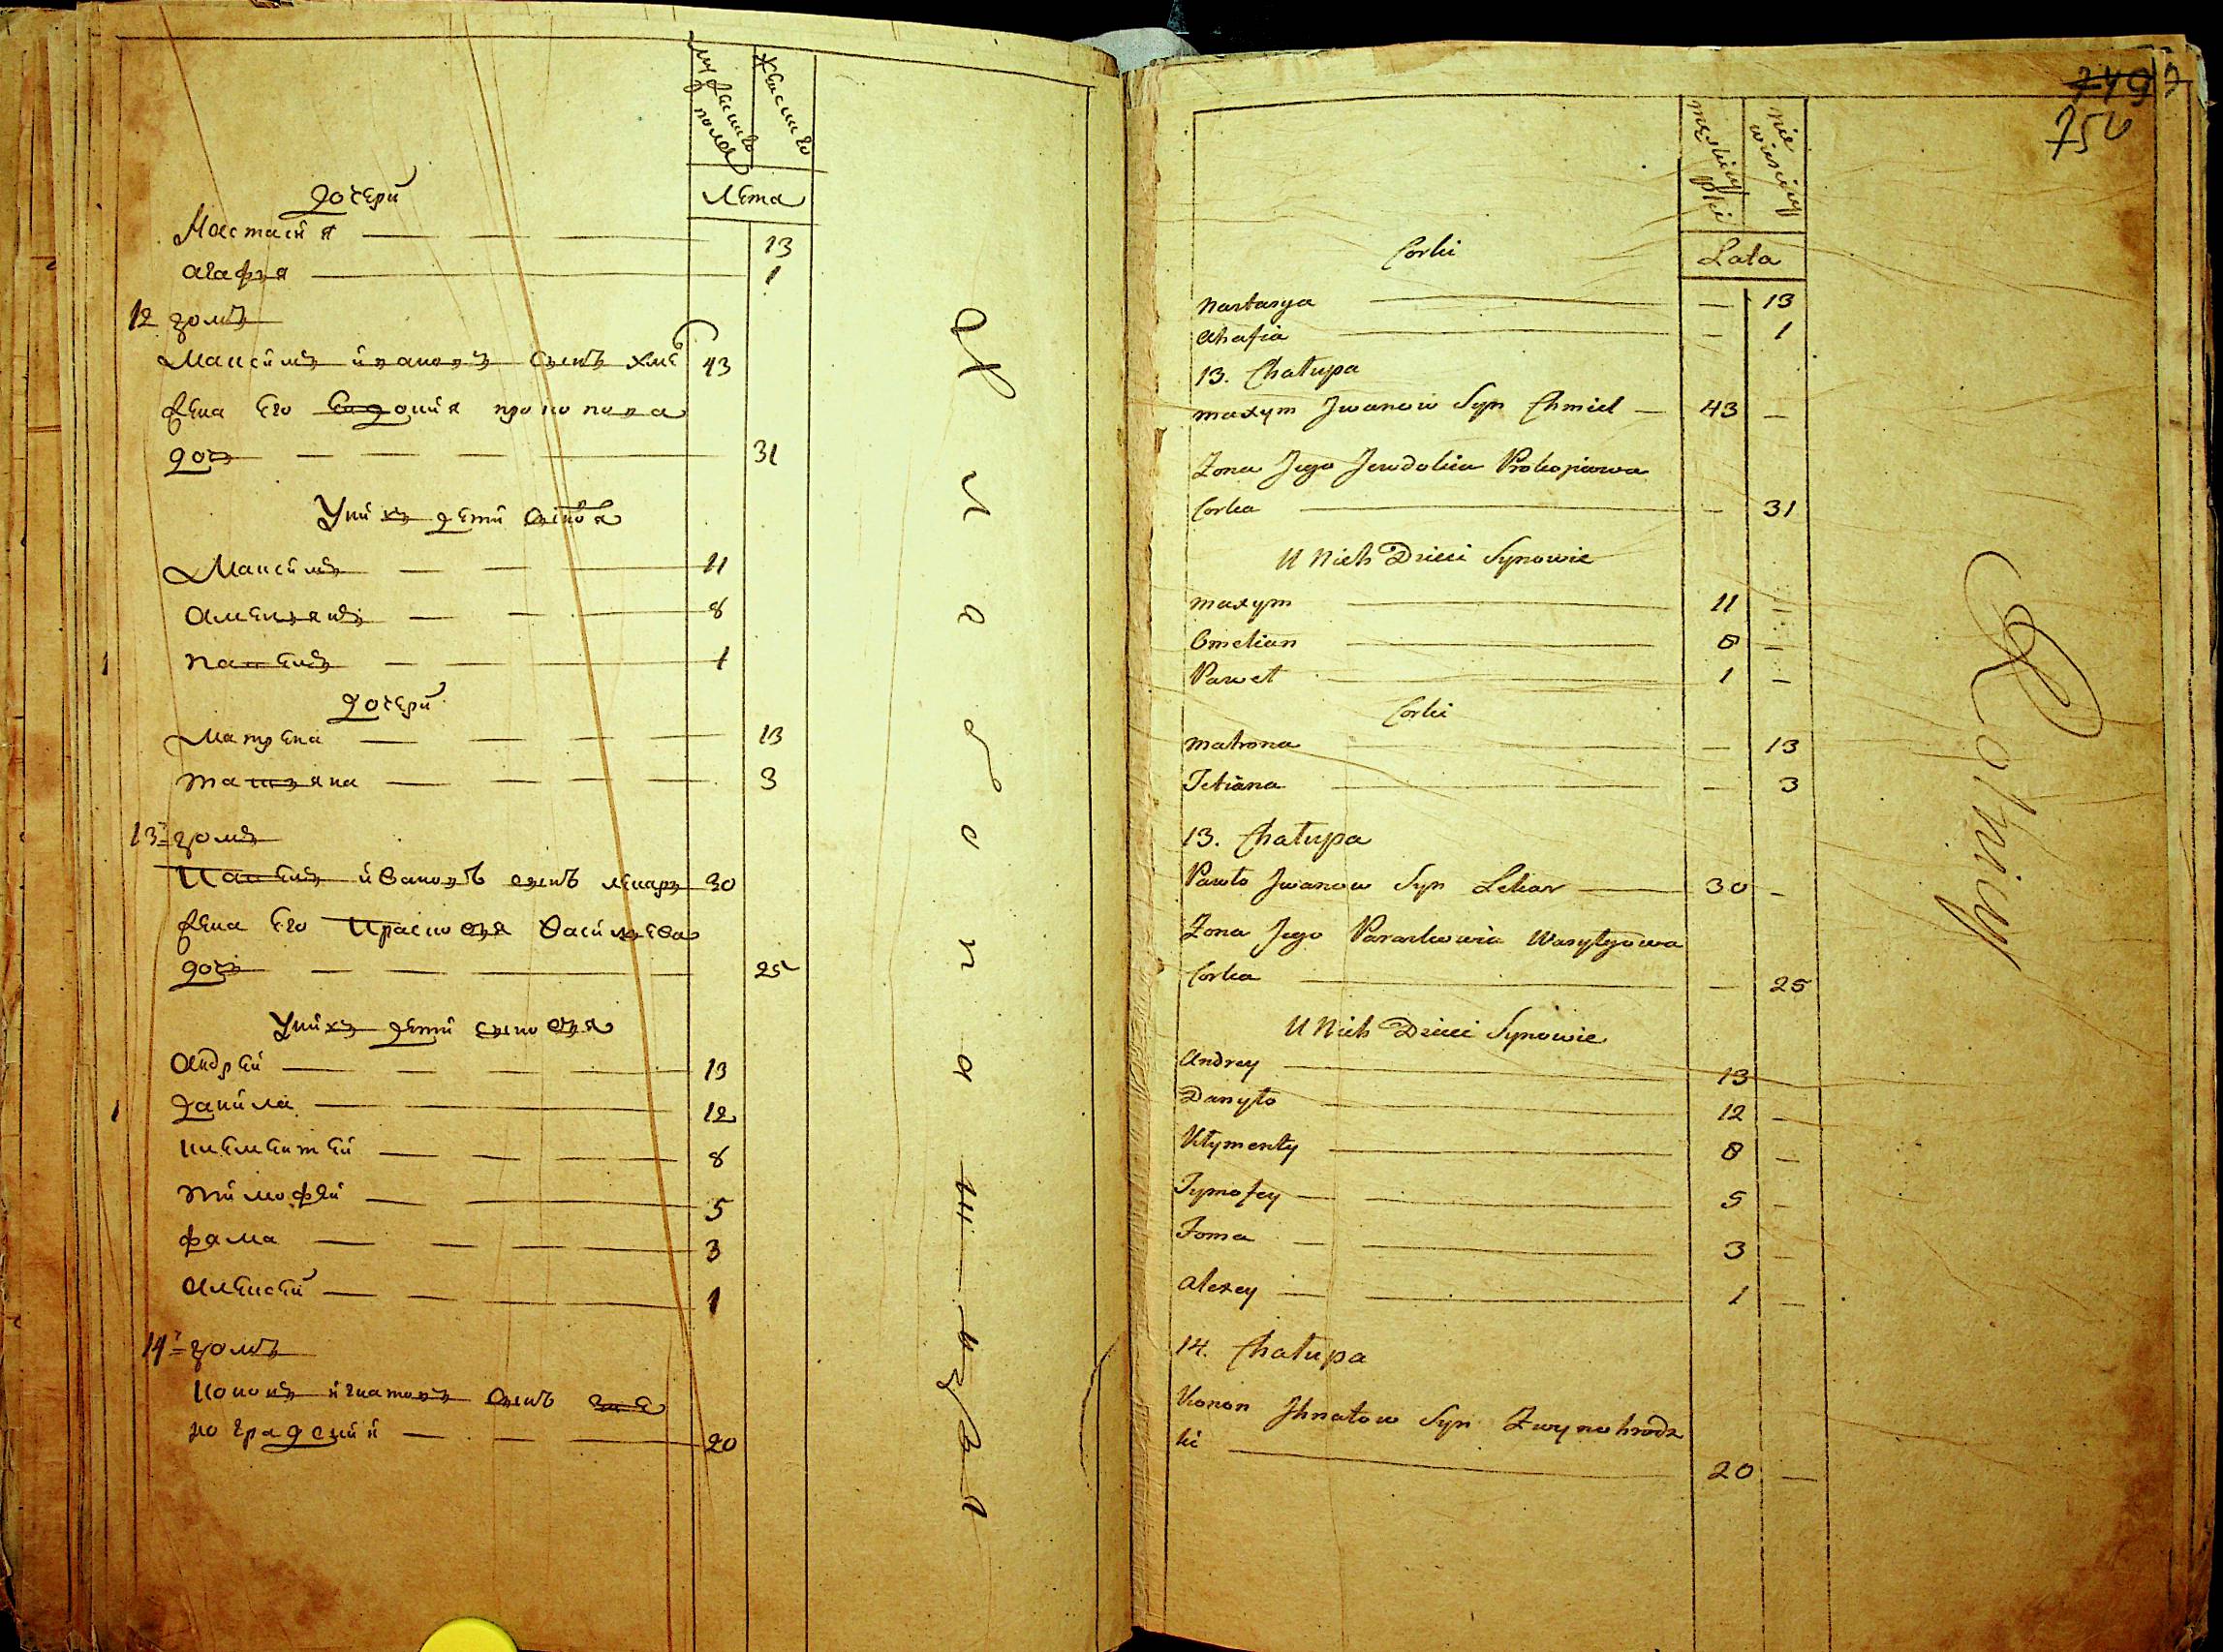 мужеска пола
женска го
Лета
дочери
Настасия 13
агафя 1
12 домъ
Максимъ ивановъ сынъ хме 43
жена его Евдокия прокопова
дочь 31
Унихъ дети сынов я
Максимъ 11
омельянъ 8
1 павелъ 1
дочери
Матрена 13
татьяна 3
13 домъ
Павелъ ивановъ сынъ лекарь 30
жена его Прасковья Васильева
дочь 25
Унихъ дети сыновья
Андрей 13
1 данила 12
клементей 8
тимофей 5
фома 3
алексей 1
14 домъ
кононъ игнатовъ сынъ зве
но градский 20
749
756
męskiey płci
nie wiesciey
Lata
Corki
Nastasya — 13
Ahafia — 1
13. Chałupa
Maxym Jwanow Syn Chmiel — 43 —
Żona Jego Jewdokia Prokopiowa
Corka — 31
U Nich Dzieci Synowie
Maxym 11 —
Omelian 8 —
Paweł 1 —
Corki
Matrona — 13
Tetiana — 3
13. Chałupa
Pawło Jwanow Syn Lekar — 30 —
Żona Jego Paraskowia Wasylyowa
Corka — 25
U Nich Dzieci Synowie
Andrey 13
Danyło 12 —
Kłymenty 8 —
Tymofey — 5 —
Foma — 3 —
Alexey — 1 —
14. Chałupa
Konon Jhnatow Syn Zwynohrodz
ki 20 —